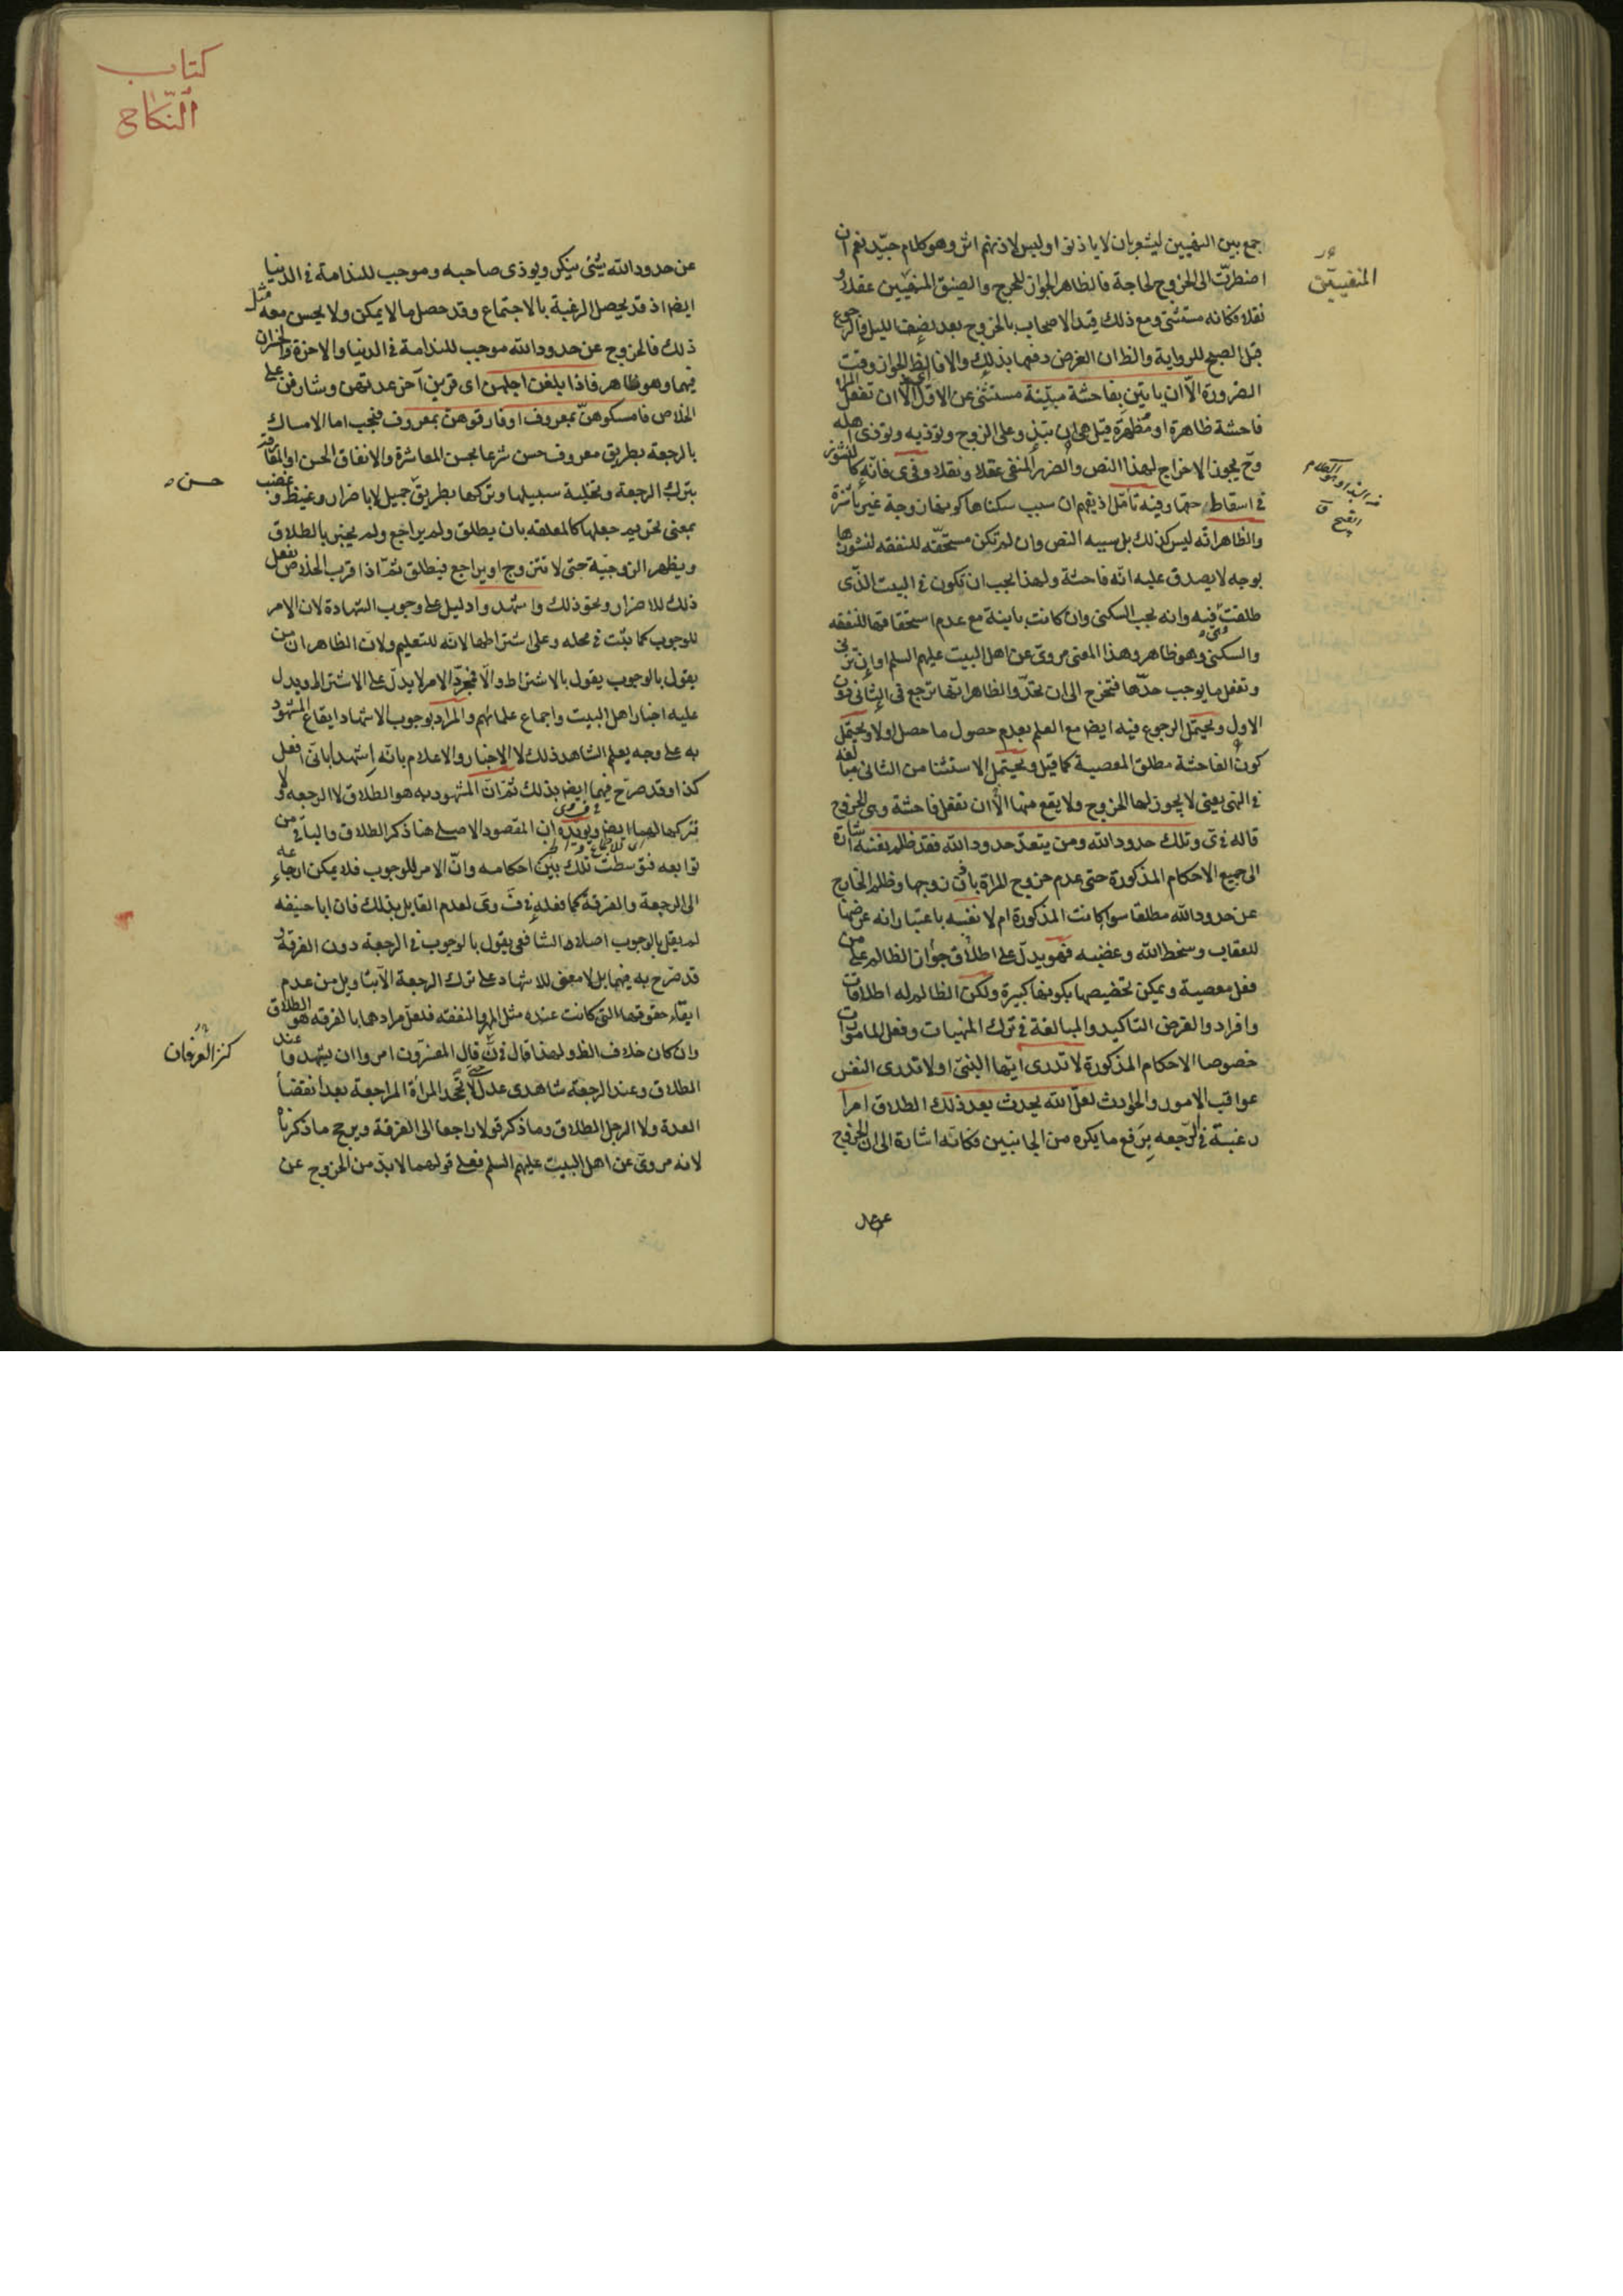 جمع بين النهيين ليشعر بان لا ياذنوا وليس لاذنهم اثر وهو كلام جيّد نعم ان
اضطرّت الى الخروج لحاجة فالظاهر الجواز للحرج والضيق المنفيين عقلا و
نقلا فكانه مستثنى ومع ذلك قيد الاصحاب بالخروج بعد نصف الليل والرجوع
قبل الصبح للرواية والظ ان الغرض دفعها بذلك والا فالظ الجواز وقت
الضرورة الّا ان ياتين بفاحشة مبيّنة مستثنى عن الاوّل اى الّا ان تفعل المراة
فاحشة ظاهرة او مظهرة قيل هى ان تبذو على الزوج وتوذيه وتوذى اهله
وح يجوز الاخراج لهذا النص والضرر المنفى عقلا ونقلا وفى ى فانّه كالنشوز
فى اسقاط حقها وفيه تامّل اذ يفهم ان سبب سكناها كونها زوجة غير ناشزة
والظاهر انّه ليس كذلك بل سببه النص وان لم تكن مستحقّه للنفقه لنشوزها
بوجه لا يصدق عليه انّه فاحشة ولهذا يجب ان تكون فى البيت الذّى
طلقت فيه وانه يجب السكنى وان كانت باينة مع عدم استحقاقها للنفقه
والسكنى وهو ظاهر وهذا المعنى مروىّ عن اهل البيت عليهم السلم او ان تزنى
وتفعل ما يوجب حدّها فتخرج الى ان تحدّ والظاهر انّها ترجع فى الثانى دون
الاول ويحتمل الرجوع فيه ايضا مع العلم بعدم حصول ما حصل اولا ويحتمل
كون الفاحشة مطلق المعصية كما قيل ويحتمل الاستثنا من الثانى مبالغه
فى النهى يعنى لا يجوز لها الخروج ولا يقع منها الّا ان تفعل فاحشة وهى الخروج
قاله فى ى وتلك حدود الله ومن يتعدّ حدود الله فقد ظلم نفسه اشارة
الى جميع الاحكام المذكورة حتى عدم خروج المراة باذن زوجها وظلم الخارج
عن حدود الله مطلقا سوا كانت المذكورة ام لا نفسه باعتبار انه عرضها
للعقاب وسخط الله وغضبه فهو يدلّ على اطلاق جواز الظالم على من
فعل معصية ويمكن تخصيصها بكونها كبيرة ولكن الظالم له اطلاقات
وافراد والغرض التاكيد والمبالغة فى ترك المنهيات وفعل المامورات
خصوصا الاحكام المذكورة لا تدرى ايّها النبىّ او لا تدرى النفس
عواقب الامور والحوادث لعلّ الله يحدث بعد ذلك الطلاق امرا
رغبة فى الرّجعه برفع ما يكره من الجانبين فكانّه اشارة الى ان الخروج
المنفيين
عن حدود الله شئ ينكر ويوذى صاحبه وموجب للندامة فى الدنيا
ايضا اذ قد يحصل الرغبة بالاجتماع وقد حصل ما لا يمكن ولا يحسن معه مثل
ذلك فالخروج عن حدود الله موجب للندامة فى الدنيا والاخرة والخسران
فيهما وهو ظاهر فاذا بلغن اجلهن اى قربن آخر عدتهن وشارفن على
الخلاص فامسكوهنّ بمعروف او فارقوهن بمعروف فيجب اما الامساك
بالرجعة بطريق معروف حسن شرعا بحسن المعاشرة والانفاق الحسن او المفارقة
بترك الرجعة وتخلية سبيلها وتركها بطريق جميل لا باضرار وغيظ وغضب
بمعنى تحريم جعلها كالمعلقه بان يطلق ولم يراجع ولم يخبر بالطلاق
ويظهر الزوجيّة حتى لا تتزوج او يراجع فيطلق ثمّ اذا قرب الخلاص يفعل
ذلك للاضرار ونحو ذلك واشهدوا دليل على وجوب الشهادة لان الامر
للوجوب كما ثبت فى محله وعلى اشتراطها لانّه للتعليم ولان الظاهر ان من
يقول بالوجوب يقول بالاشتراط والّا فمجرّد الامر لا يدلّ على الاشتراط ويدل
عليه اخبار اهل البيت واجماع علمائهم والمراد بوجوب الاشهاد ايقاع المشهود
به على وجه يعلم الشاهد ذلك لا الاخبار والاعلام بانّه اشهد بانّى افعل
كذا وقد صرّح فيها ايضا بذلك ثمّ انّ المشهود به هو الطلاق لا الرجعه ولا
تركها لهما ايض ويويده ان المقصود الاصلى هنا ذكر الطلاق والباقى من
توابعه فتوسطت تلك بين احكامه وانّ الامر للوجوب فلا يمكن ارجاعه
الى الرجعة والفرقة كما فعله فى ق وى لعدم القايل بذلك فان ابا حنيفه
لم يقل بالوجوب اصلا والشافعى يقول بالوجوب فى الرجعة دون الفرقة و
قد صرح به فيهما بل لا معنى للاشهاد على ترك الرجعة الّا بتاويل من عدم
ايفاء حقوقها التى كانت عنده مثل المهر والنفقه فلعلّ مرادهما بالفرقه هو الطلاق
وان كان خلاف الظ ولهذا قال فى ن قال المفسّرون امروا ان يشهدوا عند
الطلاق وعند الرجعة شاهدى عدل حتى لا تجحد المراة المراجعة بعد انقضا
العدة ولا الرجل الطلاق وما ذكر قولا راجعا الى الفرقة ويرجح ما ذكرناه
لانه مروىّ عن اهل البيت عليهم السلم فعلى قولهما لابدّ من الخروج عن
كتاب
النّكاح
حسن
كنز العرفان